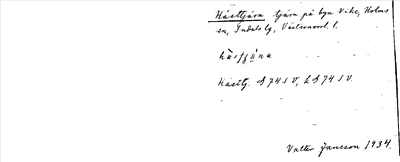 Hästtjärn tjärn på byn Vike, Holms
sn, Indals tg, Västernorrl. l.
hàsʃɟänn
Hästtj. S 74 S V, L S 74 S V.
Valter Jansson 1934.